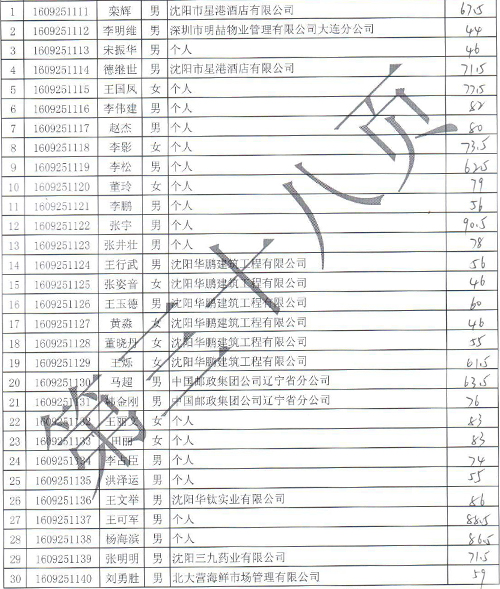 1 1609251111 栾辉 男 沈阳市星港酒店有限公司 67.5
2 1609251112 李明维 男 深圳市明喆物业管理有限公司大连分公司 44
3 1609251113 宋振华 男 个人 46
4 1609251114 德继世 男 沈阳市星港酒店有限公司 71.5
5 1609251115 王国凤 女 个人 77.5
6 1609251116 李伟建 男 个人 82
7 1609251117 赵杰 男 个人 80
8 1609251118 李影 女 个人 73.5
9 1609251119 李松 男 个人 62.5
10 1609251120 董玲 女 个人 79
11 1609251121 李鹏 男 个人 56
12 1609251122 张宇 男 个人 90.5
13 1609251123 张井壮 男 个人 78
14 1609251124 王行武 男 沈阳华鹏建筑工程有限公司 56
15 1609251125 张姿音 女 沈阳华鹏建筑工程有限公司 46
16 1609251126 王玉德 男 沈阳华鹏建筑工程有限公司 60
17 1609251127 黄淼 女 沈阳华鹏建筑工程有限公司 46
18 1609251128 董晓丹 女 沈阳华鹏建筑工程有限公司 55
19 1609251129 王烁 女 沈阳华鹏建筑工程有限公司 61.5
20 1609251130 马超 男 中国邮政集团公司辽宁省分公司 63.5
21 1609251131 金刚 男 中国邮政集团公司辽宁省分公司 76
22 1609251132 王丽 女 个人 83
23 1609251133 田丽 女 个人 83
24 1609251134 李占臣 男 个人 74
25 1609251135 洪泽运 男 个人 55
26 1609251136 王文举 男 沈阳华钛实业有限公司 86
27 1609251137 王可军 男 个人 88.5
28 1609251138 杨海滨 男 个人 86.5
29 1609251139 张明明 男 沈阳三九药业有限公司 71.5
30 1609251140 刘勇胜 男 北大营海鲜市场管理有限公司 59
第三十八页